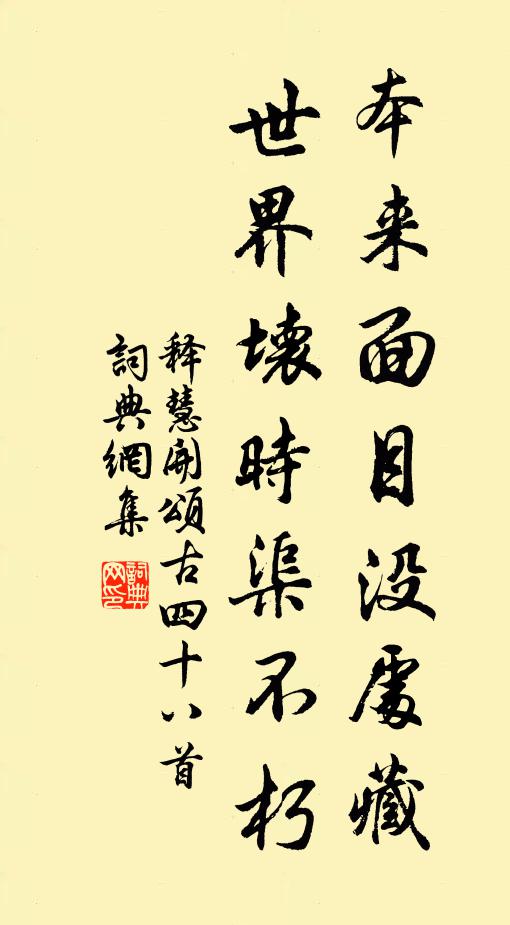 本来面目没處藏
世界壊時渠不朽
释慧開頌古四十八首
詞典網集
詞典网印